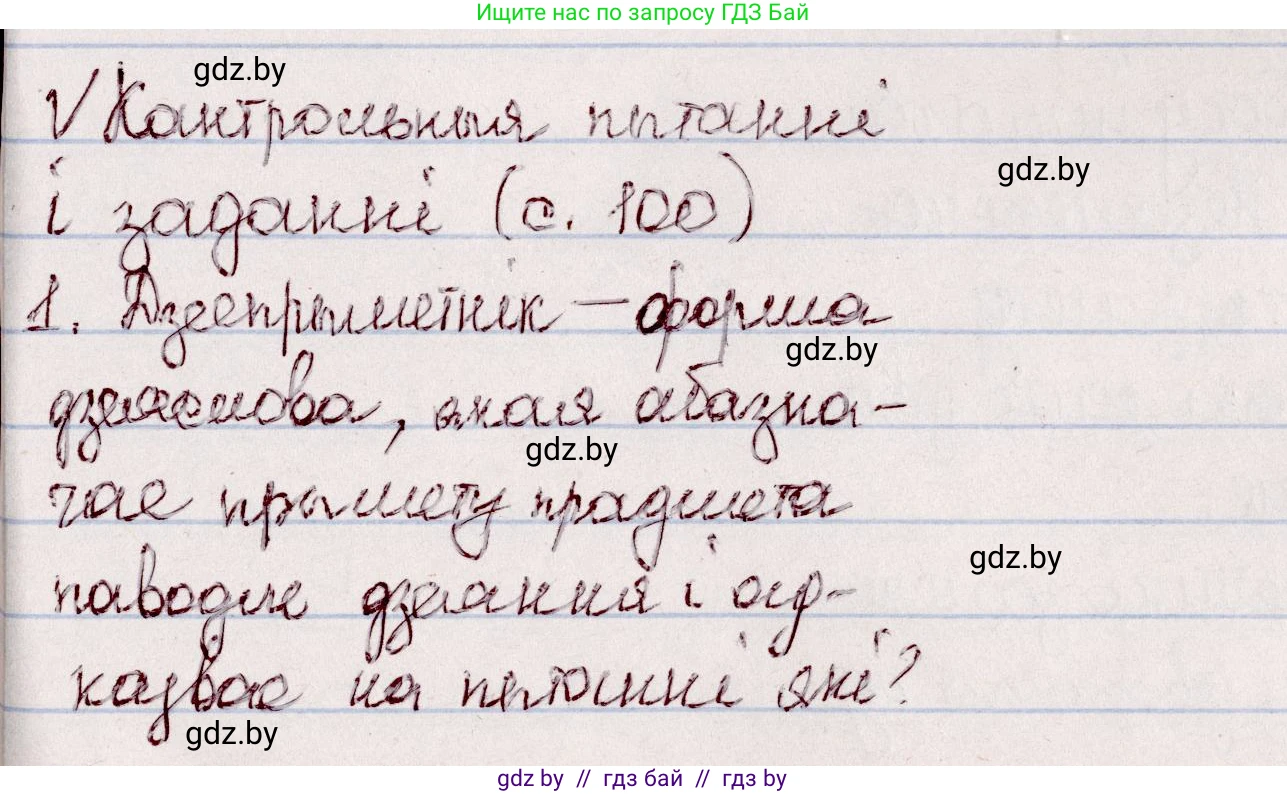 Ищите нас по запросу ГДЗ Бай
gdz.by
√ Кантрольныя пытанні
gdz.by
і заданні (с. 100)
1. Дзеепрыметнік — форма
gdz.by
дзеяслова, якая абазна-
gdz.by
чае прымету прадмета
gdz.by
паводле дзеяння і ад-
казвае на пытанні які?
gdz.by
gdz by // гдз бай // гдз by